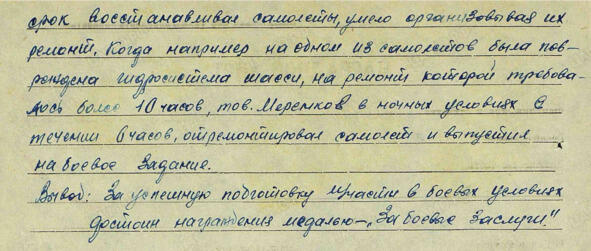 срок восстанавливая самолеты, умело организовывая их
ремонт. Когда например на одном из самолетов была пов-
реждена гидросистема шасси, на ремонт которой требова-
лось более 10 часов, тов. Меремков в ночных условиях в
течении 6 часов, отремонтировал самолет и выпустил
на боевое задание.
Вывод: За успешную подготовку матчасти в боевых условиях
достоин награждения медалью – „За боевые заслуги."